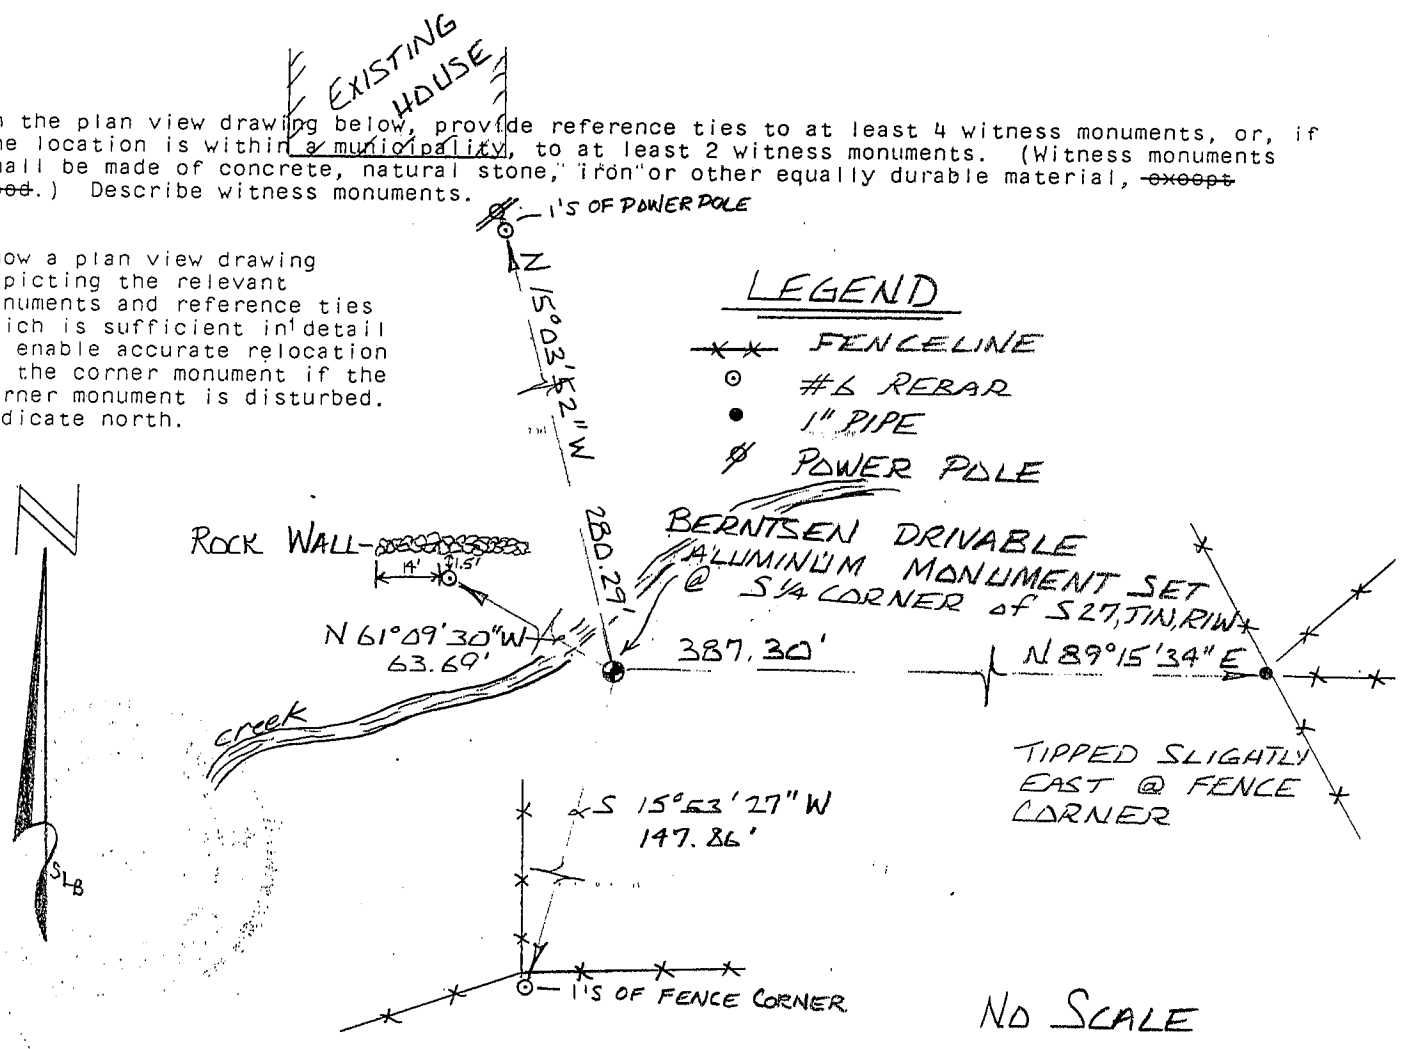 EXISTING
HOUSE
the plan view drawing below, provide reference ties to at least 4 witness monuments, or, if
e location is within a municipality, to at least 2 witness monuments. (Witness monuments
all be made of concrete, natural stone, iron or other equally durable material, except
od.) Describe witness monuments.
1'S OF POWER POLE
ow a plan view drawing
picting the relevant
numents and reference ties
ich is sufficient in detail
enable accurate relocation
the corner monument if the
rner monument is disturbed.
dicate north.
N 15°03'52" W
280.29'
LEGEND
FENCELINE
#6 REBAR
1" PIPE
POWER POLE
N
ROCK WALL
14'
1.5'
BERNTSEN DRIVABLE
ALUMINUM MONUMENT SET
@ S 1/4 CORNER of S27,T1N,R1W
N 61°09'30"W
63.69'
387.30'
N 89°15'34" E
creek
TIPPED SLIGHTLY
EAST @ FENCE
CORNER
S 15°53'27" W
147.86'
SLB
1'S OF FENCE CORNER
NO SCALE